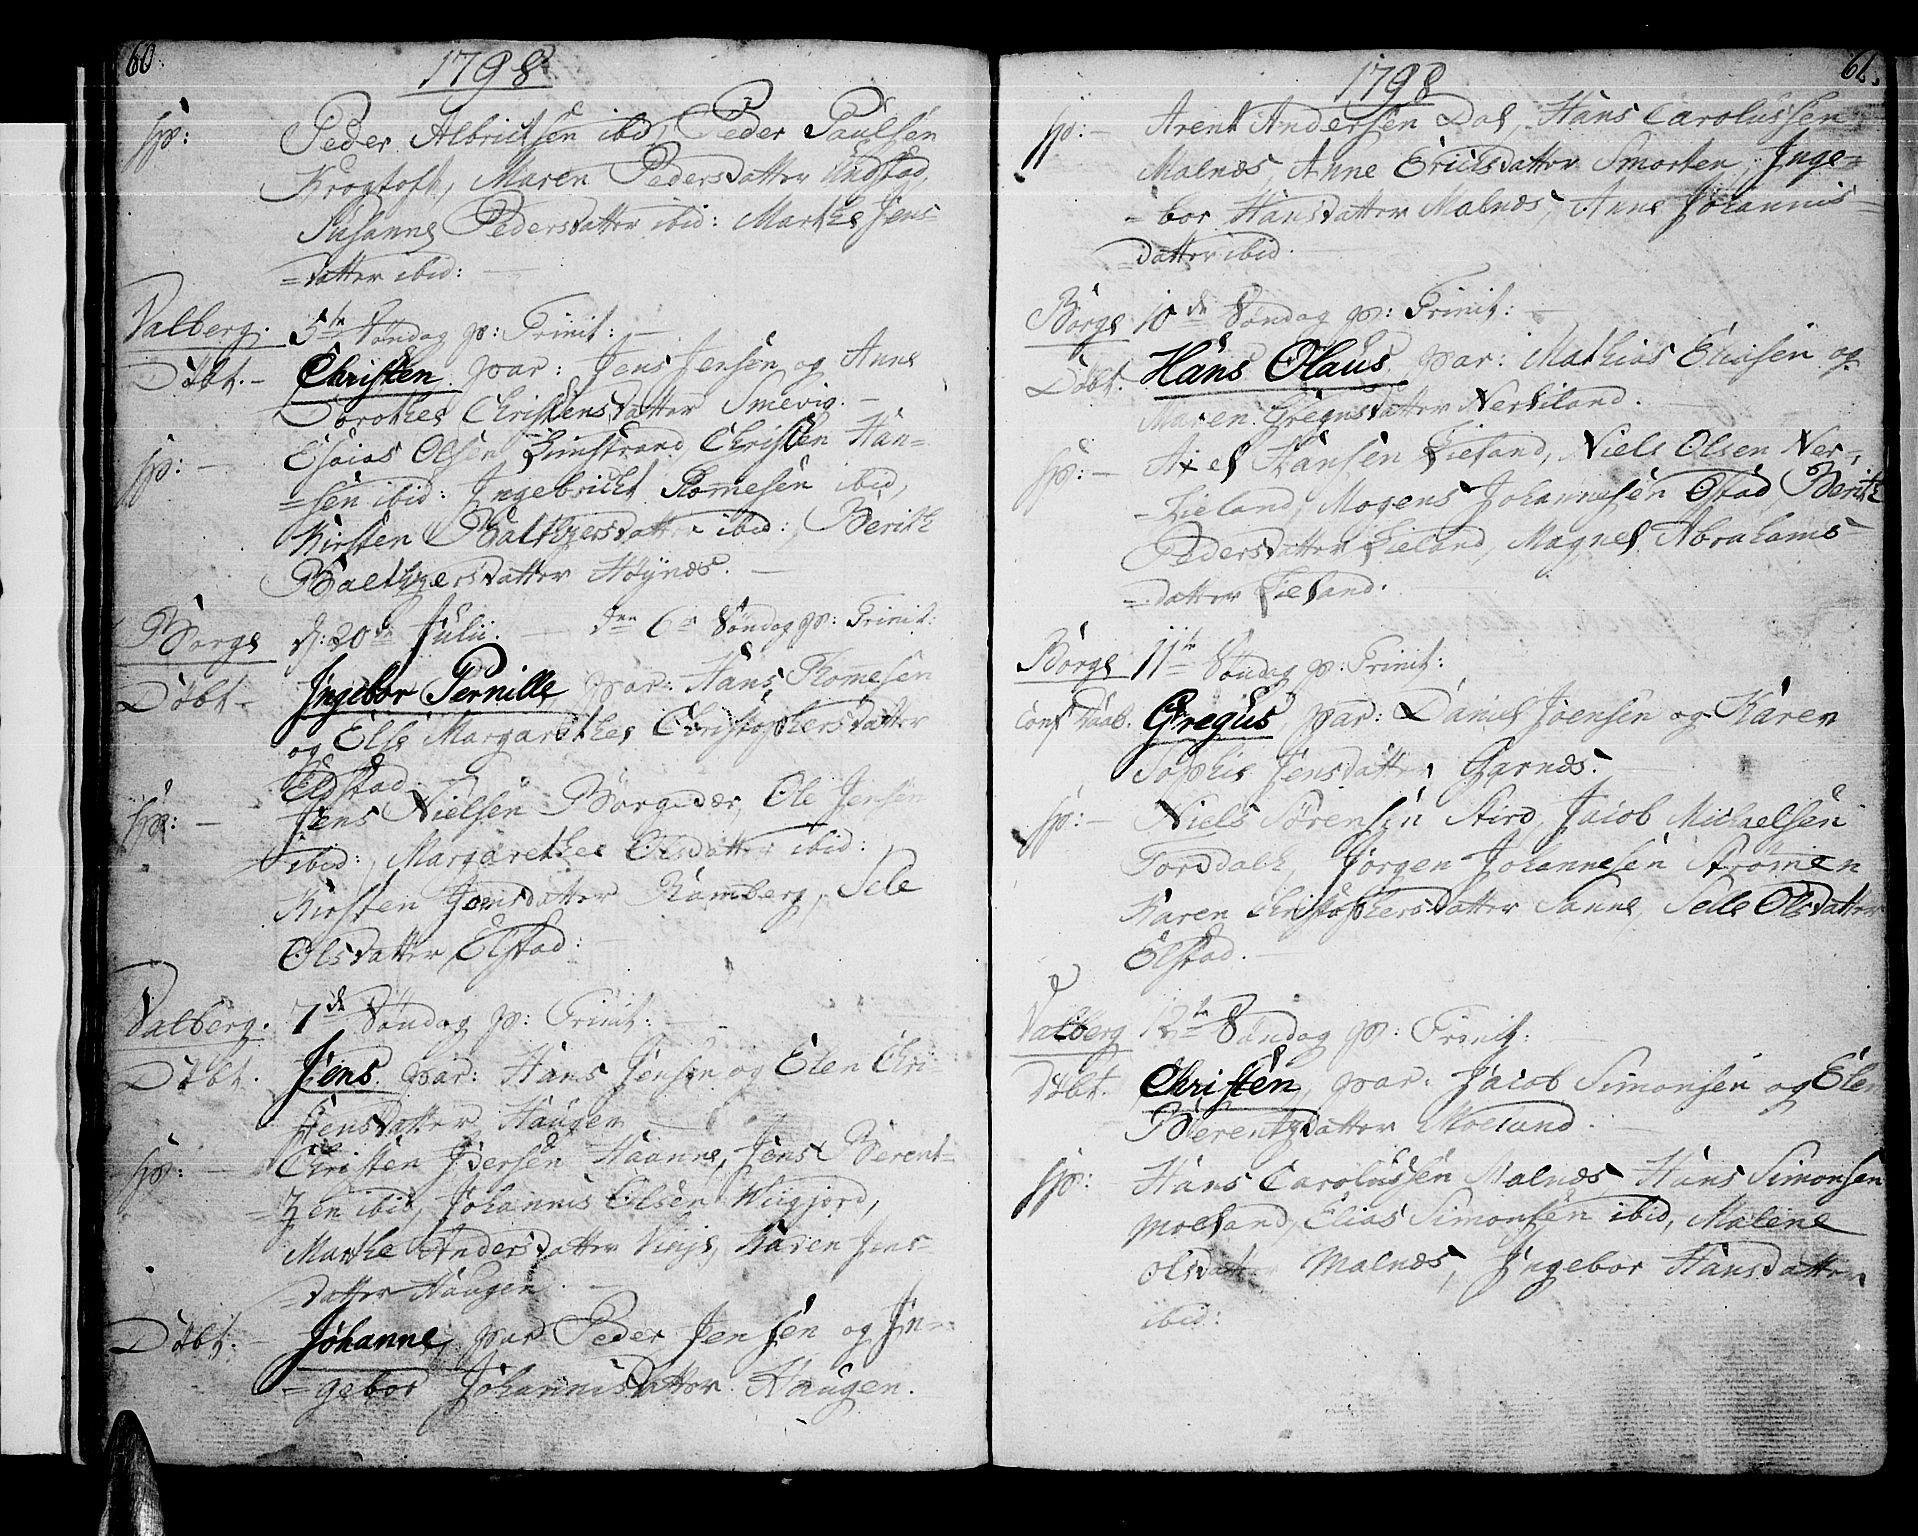 60.
1798
Sp: Peder Albrictsen ibid, Peder Paulsen
Krogtoft, Maren Pedersdatter Undstad,
Susanne Pedersdatter ibid: Marthe Jens
=datter ibid:
Valberg. 5te Søndag p: Trinit:
Døbt. Christen par: Jens Jensen og Anne
Dorothea Christensdatter Smevig.
sp: Esaias Olsen Limstrand, Christen Han=
=sen ibid: Ingebricht Tommesen ibid,
Kirsten Balthzersdatter ibid: Berith
Balthzersdatter Høynæs.
Borge d: 20de Julii. den 6te Søndag p: Trinit:
Døbt Ingebor Pernille, par: Hans Tommesen
og Else Margarethe Christophersdatter
Elstad
sp: Jens Nielsen Borgevær Ole Jensen
ibid: Margarethe Olsdatter ibid:
Kirsten Joensdatter Ramberg, Sele
Olsdatter Elstad:
Valberg. 7de Søndag p: Trinit:
Døbt. Jens. par: Hans Jensen og Elen Chri-
stensdatter Haugen
sp: Christen Iversen Haanne, Jens Berent-
=zen ibid, Johannis Olsen Wiigjord,
Marthe Andersdatter Vinje, Karen Jens-
=datter Haugen.
Døbt. Johanne, par. Peder Jensen og In=
=gebor Johannisdatter Haugen.
61.
1798
sp: Arent Andersen Dal, Hans Carolussen
Malnæs, Anne Ericksdatter Smorten, Inge=
=bor Hansdatter Malnæs, Anne Johannis=
=datter ibid.
Borge 10de Søndag p: Trinit:
Døbt. Hans Olaus, par: Mathias Eliasen og
Maren Gregusdatter Nerliland.
sp: Axel Hansen Lieland, Niels Olsen Ner=
=Lieland, Mogens Johannesen Ostad, Berith
Pedersdatter Lieland, Magnel Abrahams=
=datter Lieland.
Borge 11te Søndag p: Trinit:
Conf Daab. Gregus, par: Daniel Joensen og Karen
Sophie Jensdatter Æarnæs.
sp: Niels Sørensen Stird, Jacob Michaelsen
Torddalh, Jørgen Johannesen Strømen
Karen Christophersdatter Sanne, Sele Olsdatter
Elstad.
Valberg 12te Søndag p: Trinit:
Døbt. Christen, par: Jacob Simonsen og Elen
Berentzdatter Moeland.
sp: Hans Carolussen Malnæs Hans Simonsen
Moeland, Elias Simonsen ibid, Malene
Olsdatter Malnæs, Ingebor Hansdatter
ibid: